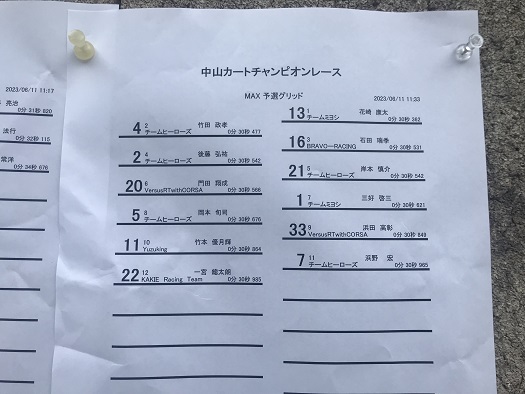 中山カートチャンピオンレース
MAX 予選グリッド
2023/06/11 11:33
4 2 竹田 政孝
チームヒーローズ 0分 30秒 477
2 4 後藤 弘祐
チームヒーローズ 0分 30秒 542
20 6 門田 翔成
VersusRTwithCORSA 0分 30秒 566
5 8 岡本 旬司
チームヒーローズ 0分 30秒 676
11 10 竹本 優月輝
Yuzuking 0分 30秒 864
22 12 一宮 龍太朗
KAKIE Racing Team 0分 30秒 985
13 1 花崎 康太
チームミヨシ 0分 30秒 362
16 3 石田 瑞季
BRAVO-RACING 0分 30秒 531
21 5 岸本 慎介
チームヒーローズ 0分 30秒 542
1 7 三好 啓三
チームミヨシ 0分 30秒 621
33 9 浜田 高彰
VersusRTwithCORSA 0分 30秒 848
7 11 浜野 宏
チームヒーローズ 0分 30秒 965
2023/06/11 11:17
亮治
0分 31秒 820
法行
0分 32秒 115
常洋
0分 34秒 676